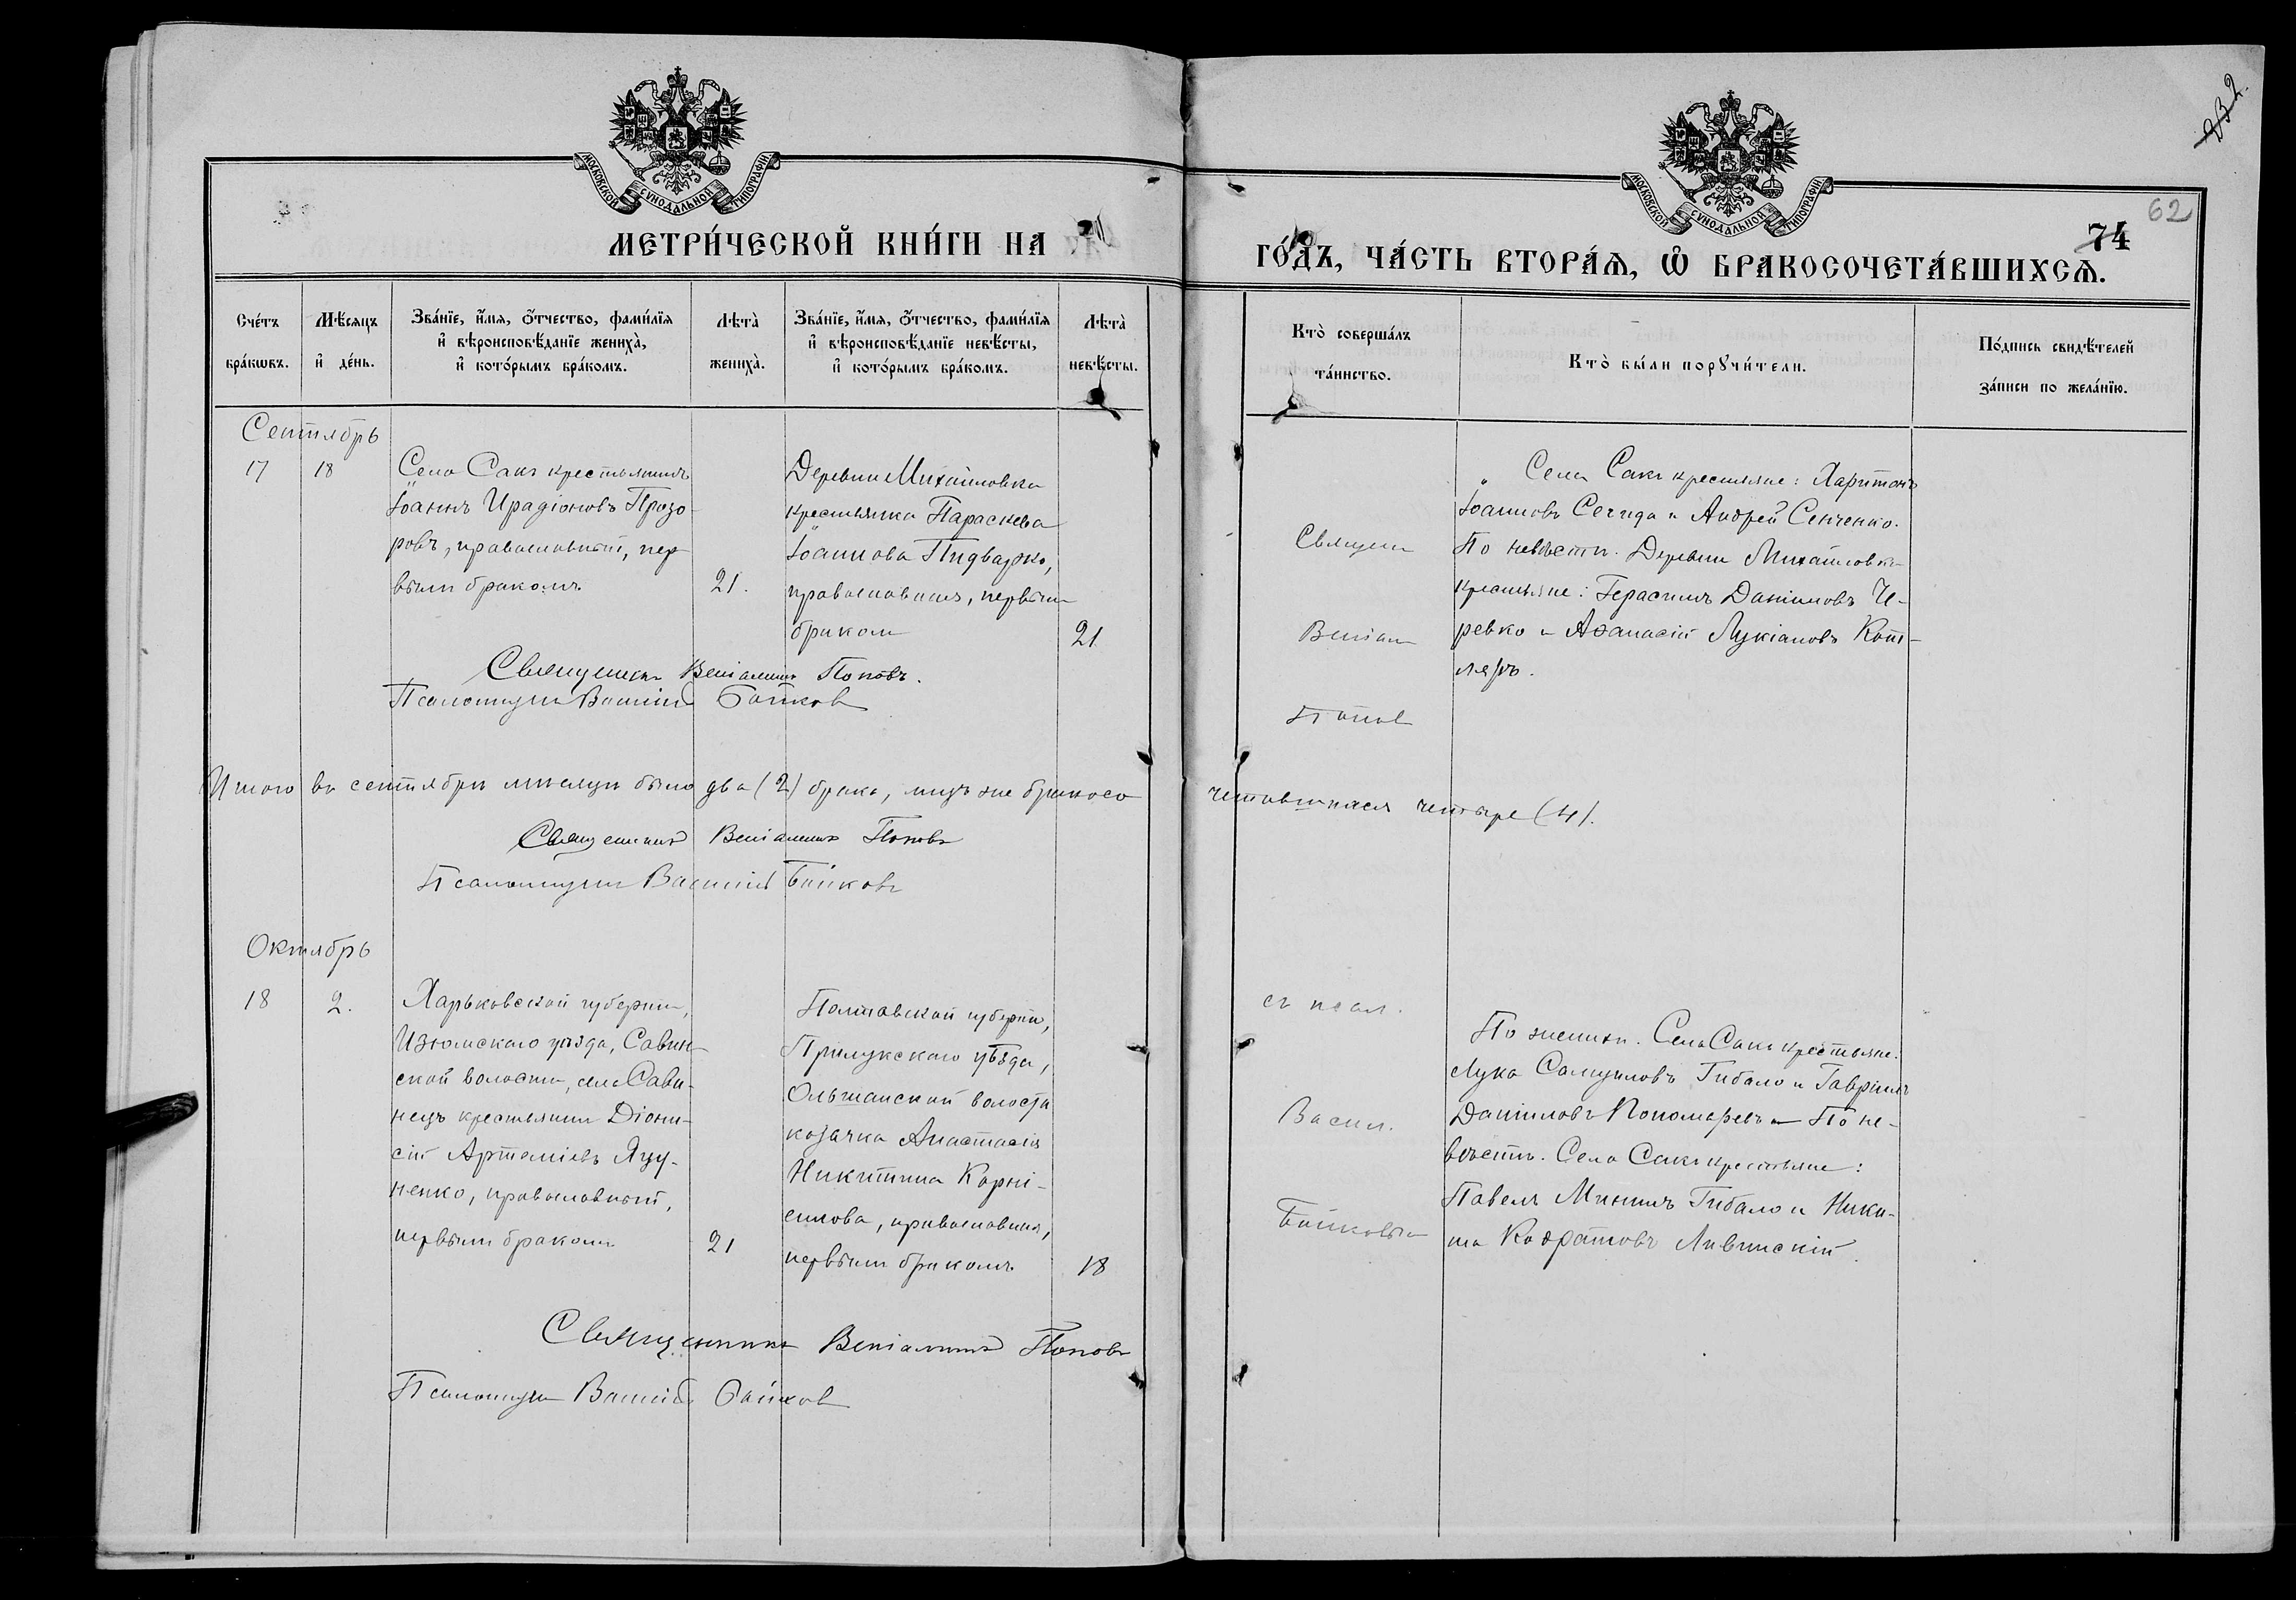 232.
МОСКОВСКОЙ СѴНОДАЛЬНОЙ ТИПОГРАФІИ.
МОСКОВСКОЙ СѴНОДАЛЬНОЙ ТИПОГРАФІИ.
62
74
МЕТРИ́ЧЕСКОЙ КНИ́ГИ НА
ГО́ДЪ, ЧА́СТЬ ВТОРА́Ѧ, Ѡ҆ БРАКОСОЧЕТА́ВШИХСѦ.
Сче́тъ бра́кѡвъ.
Мѣ́сяцъ и҆ де́нь.
Зва́нїе, и҆́мя, о҆́тчество, фами́лїя
и҆ вѣроисповѣ́данїе жениха̀,
и҆ кото́рымъ бра́комъ.
Лѣта̀ жениха̀.
Зва́нїе, и҆́мя, о҆́тчество, фами́лїя
и҆ вѣроисповѣ́данїе невѣ́сты,
и҆ кото́рымъ бра́комъ.
Лѣта̀ невѣ́сты.
Кто̀ соверша́лъ та́инство.
Кто̀ бы́ли порꙋчи́тели.
По́дпись свидѣ́телей за́писи по жела́нїю.
Сентябрь
17
18
Села Саки крестьянинъ
Іоаннъ Ирадіоновъ Прозо-
ровъ, православный, пер-
вымъ бракомъ
21.
Деревни Михайловки
крестьянка Параскева
Іоаннова Пидварко,
православная, первымъ
бракомъ
21
Священн
Веніам
Попов
Села Саки крестьяне: Харитонъ
Іоанновъ Сегида и Андрей Сенченко.
По невѣстѣ. Деревни Михайловки
крестьяне: Герасимъ Даніиловъ Че-
ревко и Аѳанасій Лукіановъ Кот-
ляръ.
Священникъ Веніаминъ Поповъ.
Псаломщикъ Василій Байков
Итого въ сентябрѣ мѣсяцѣ было два (2) брака, лицъ же бракосо
четавшихся четыре (4).
Священникъ Веніаминъ Поповъ
Псаломщикъ Василій Байковъ
Октябрь
18
2.
Харьковской губерніи,
Изюмскаго уѣзда, Савин-
ской волости, села Сави-
нецъ крестьянинъ Діони-
сій Артеміевъ Яцу-
ненко, православный,
первымъ бракомъ
21
Полтавской губерніи,
Прилукскаго уѣзда,
Ольшанской волости
козачка Анастасія
Никитина Корні-
енкова, православная,
первымъ бракомъ
18
съ псал.
Васил.
Байковымъ
По женихѣ. Села Саки крестьяне:
Лука Самуиловъ Гибало и Гавріилъ
Даніиловъ Пономаревъ По не-
вѣстѣ. Села Саки крестьяне:
Павелъ Мининъ Гибало и Ники-
та Кодратовъ Ливинскій.
Священникъ Веніаминъ Поповъ
Псаломщикъ Василій Байков